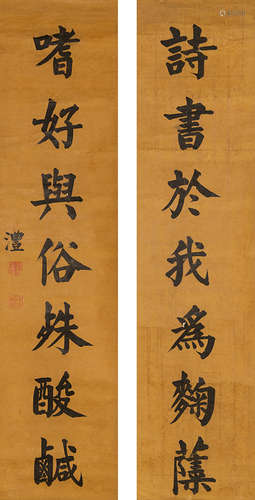 詩書於我為麴蘗
嗜好與俗殊酸鹹
澧